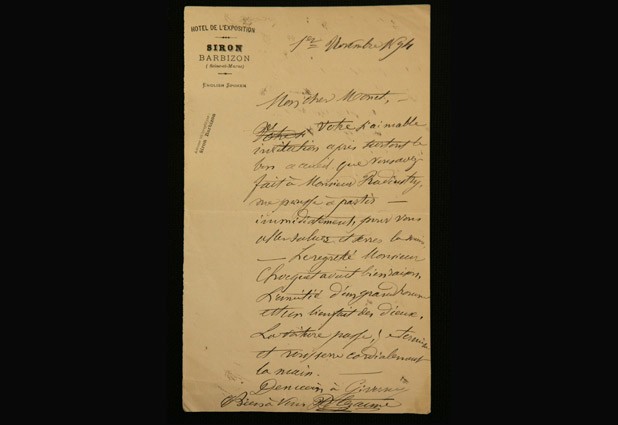 HOTEL DE L'EXPOSITION
SIRON
BARBIZON
(Seine-et-Marne)
ENGLISH SPOKEN
1er Novembre 1894
Mon cher Monet,
Votre si aimable
invitation après surtout le
bon accueil que vous avez
fait à Monsieur
me pousse à partir —
immédiatement, pour vous
aller saluer et serrer la main.
— Le regretté Monsieur
Choquet avait bien raison,
L'amitié d'un grand homme
est un bienfait des dieux.
La voiture passe! je termine
et vous serre cordialement
la main. —
Demain à Giverny
Bien à vous P Cezanne